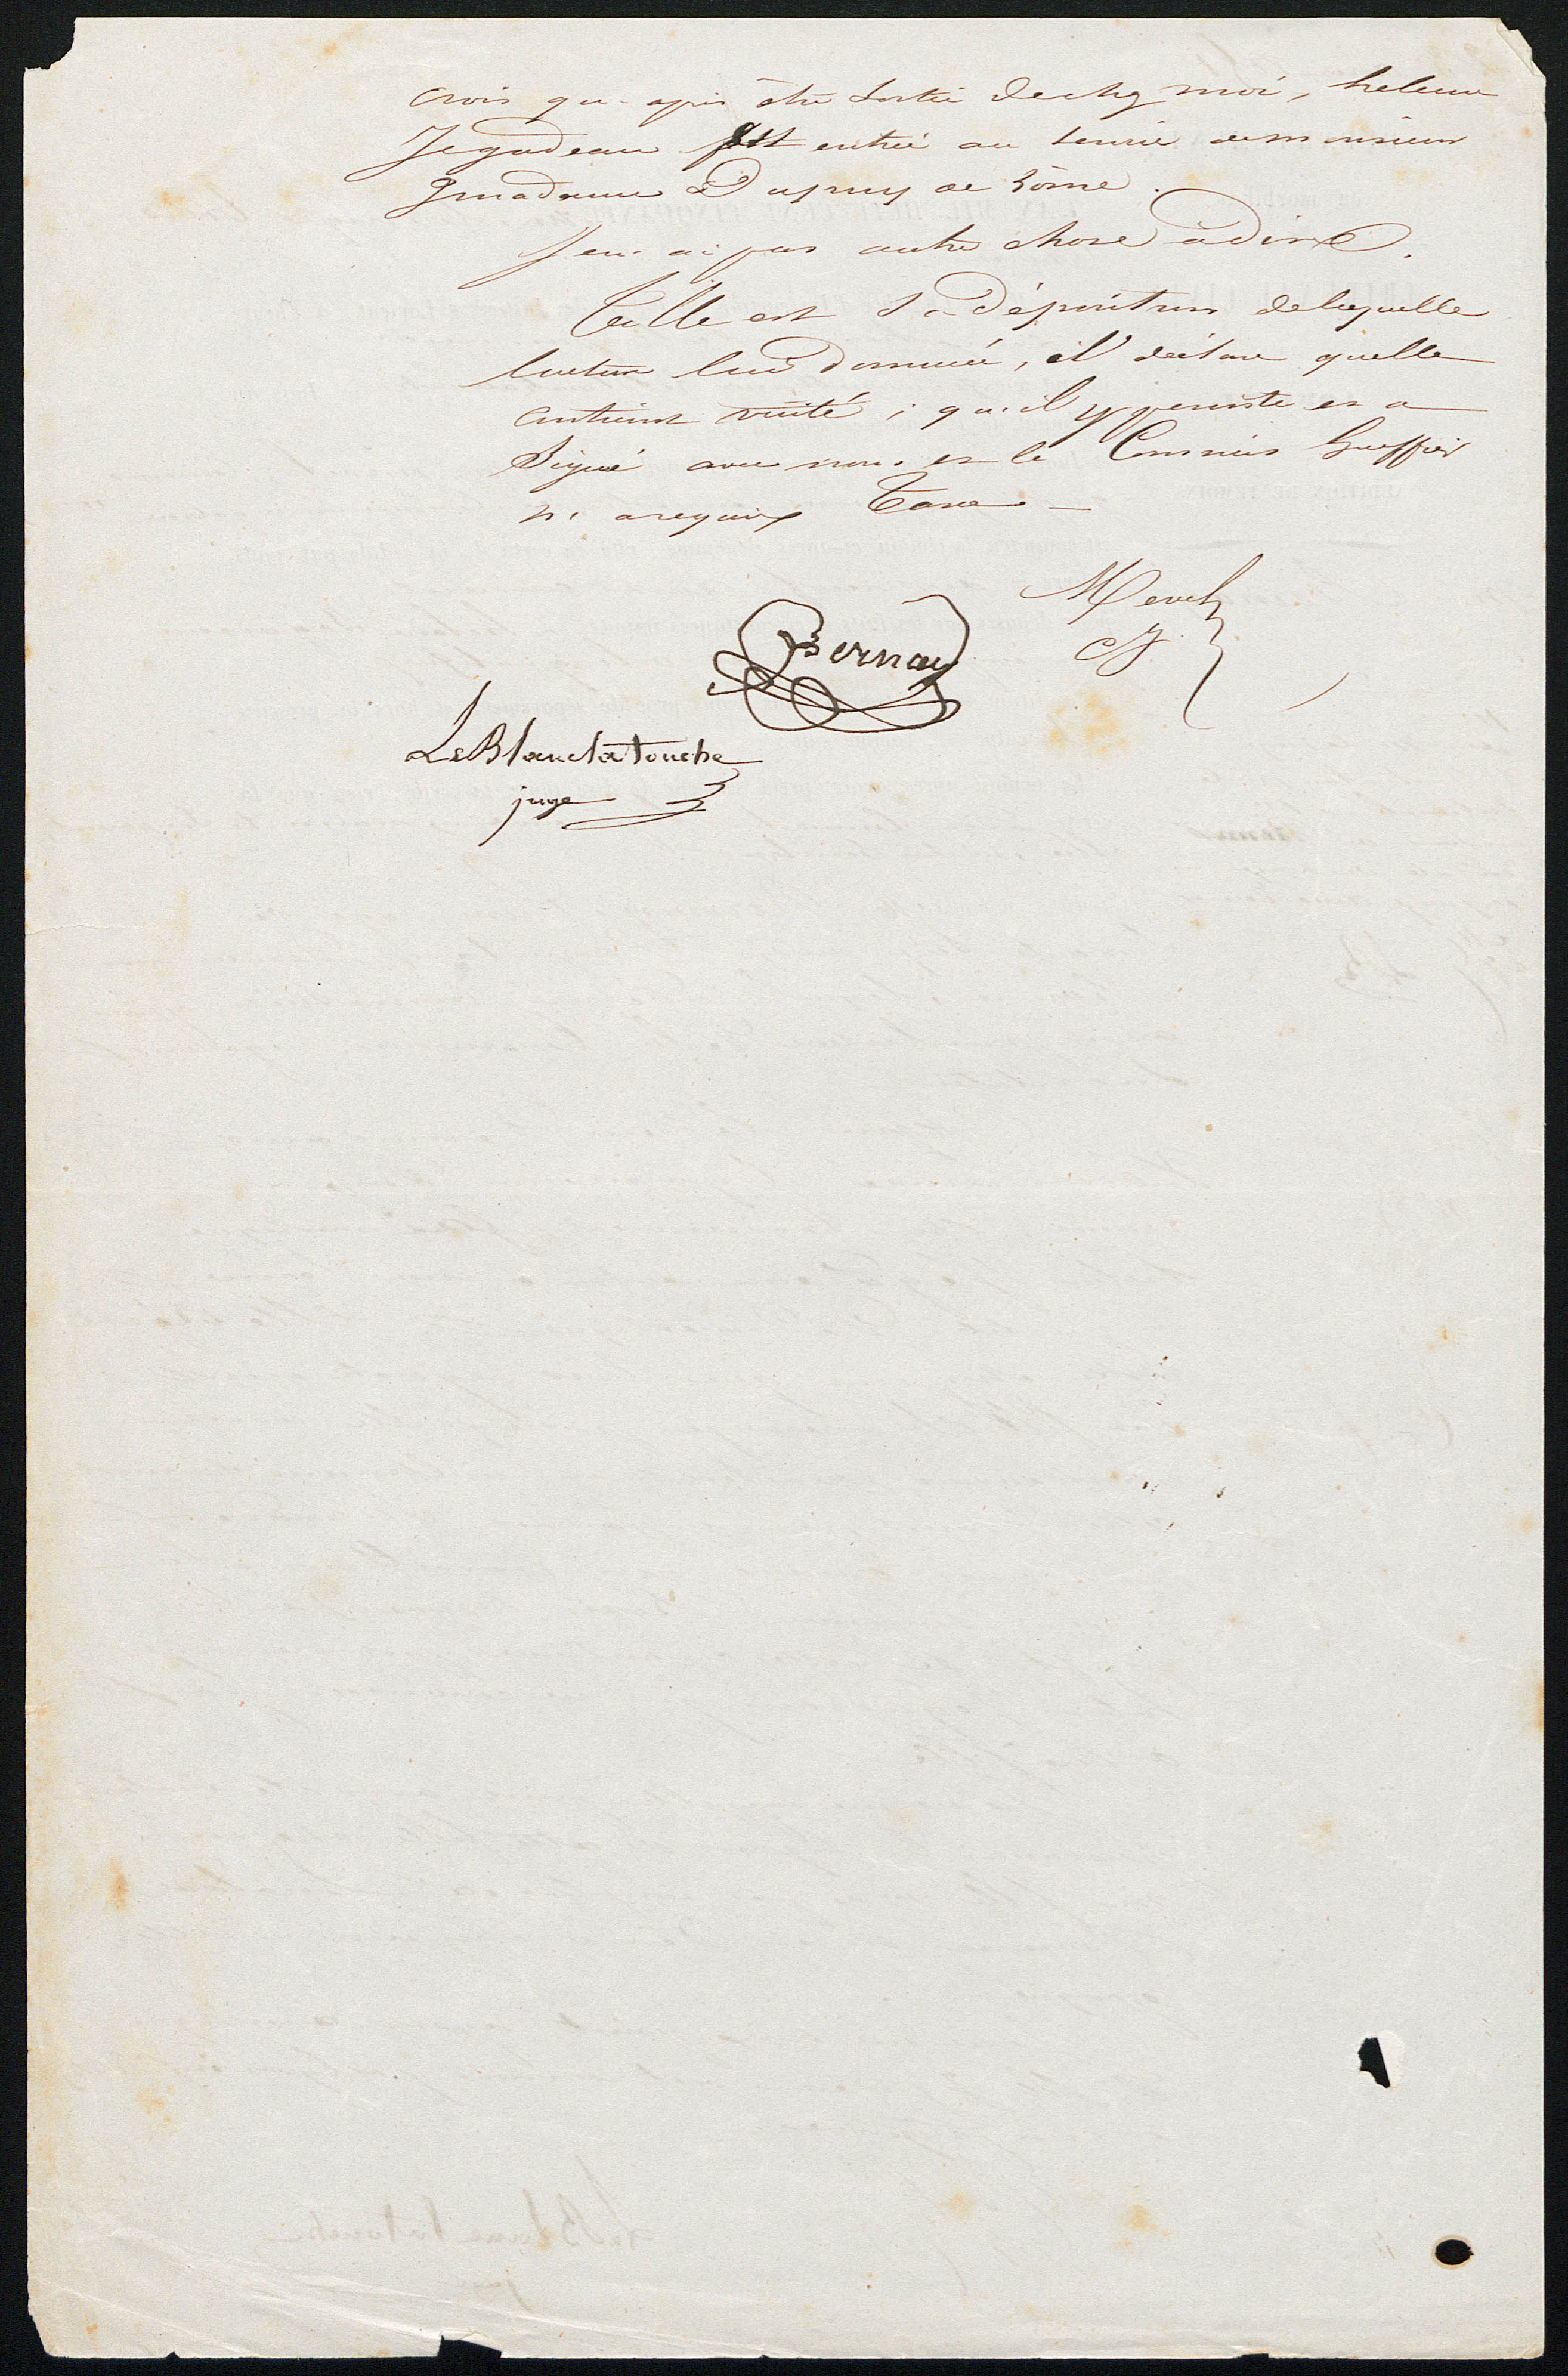 crois que après être sortie de chez moi, helene
Jegadeau est entrée au service de monsieur
& madame Dupuy de Lôme.
Je n'ai pas autre chose à dire.
Telle est sa déposition de laquelle
lecture lui donnée, il déclare quelle
contient vérité ; qu'il y persiste et a
Signé avec nous et le Commis Greffier
n'a requis taxe
Bernay
LeBlanclatouche
juge